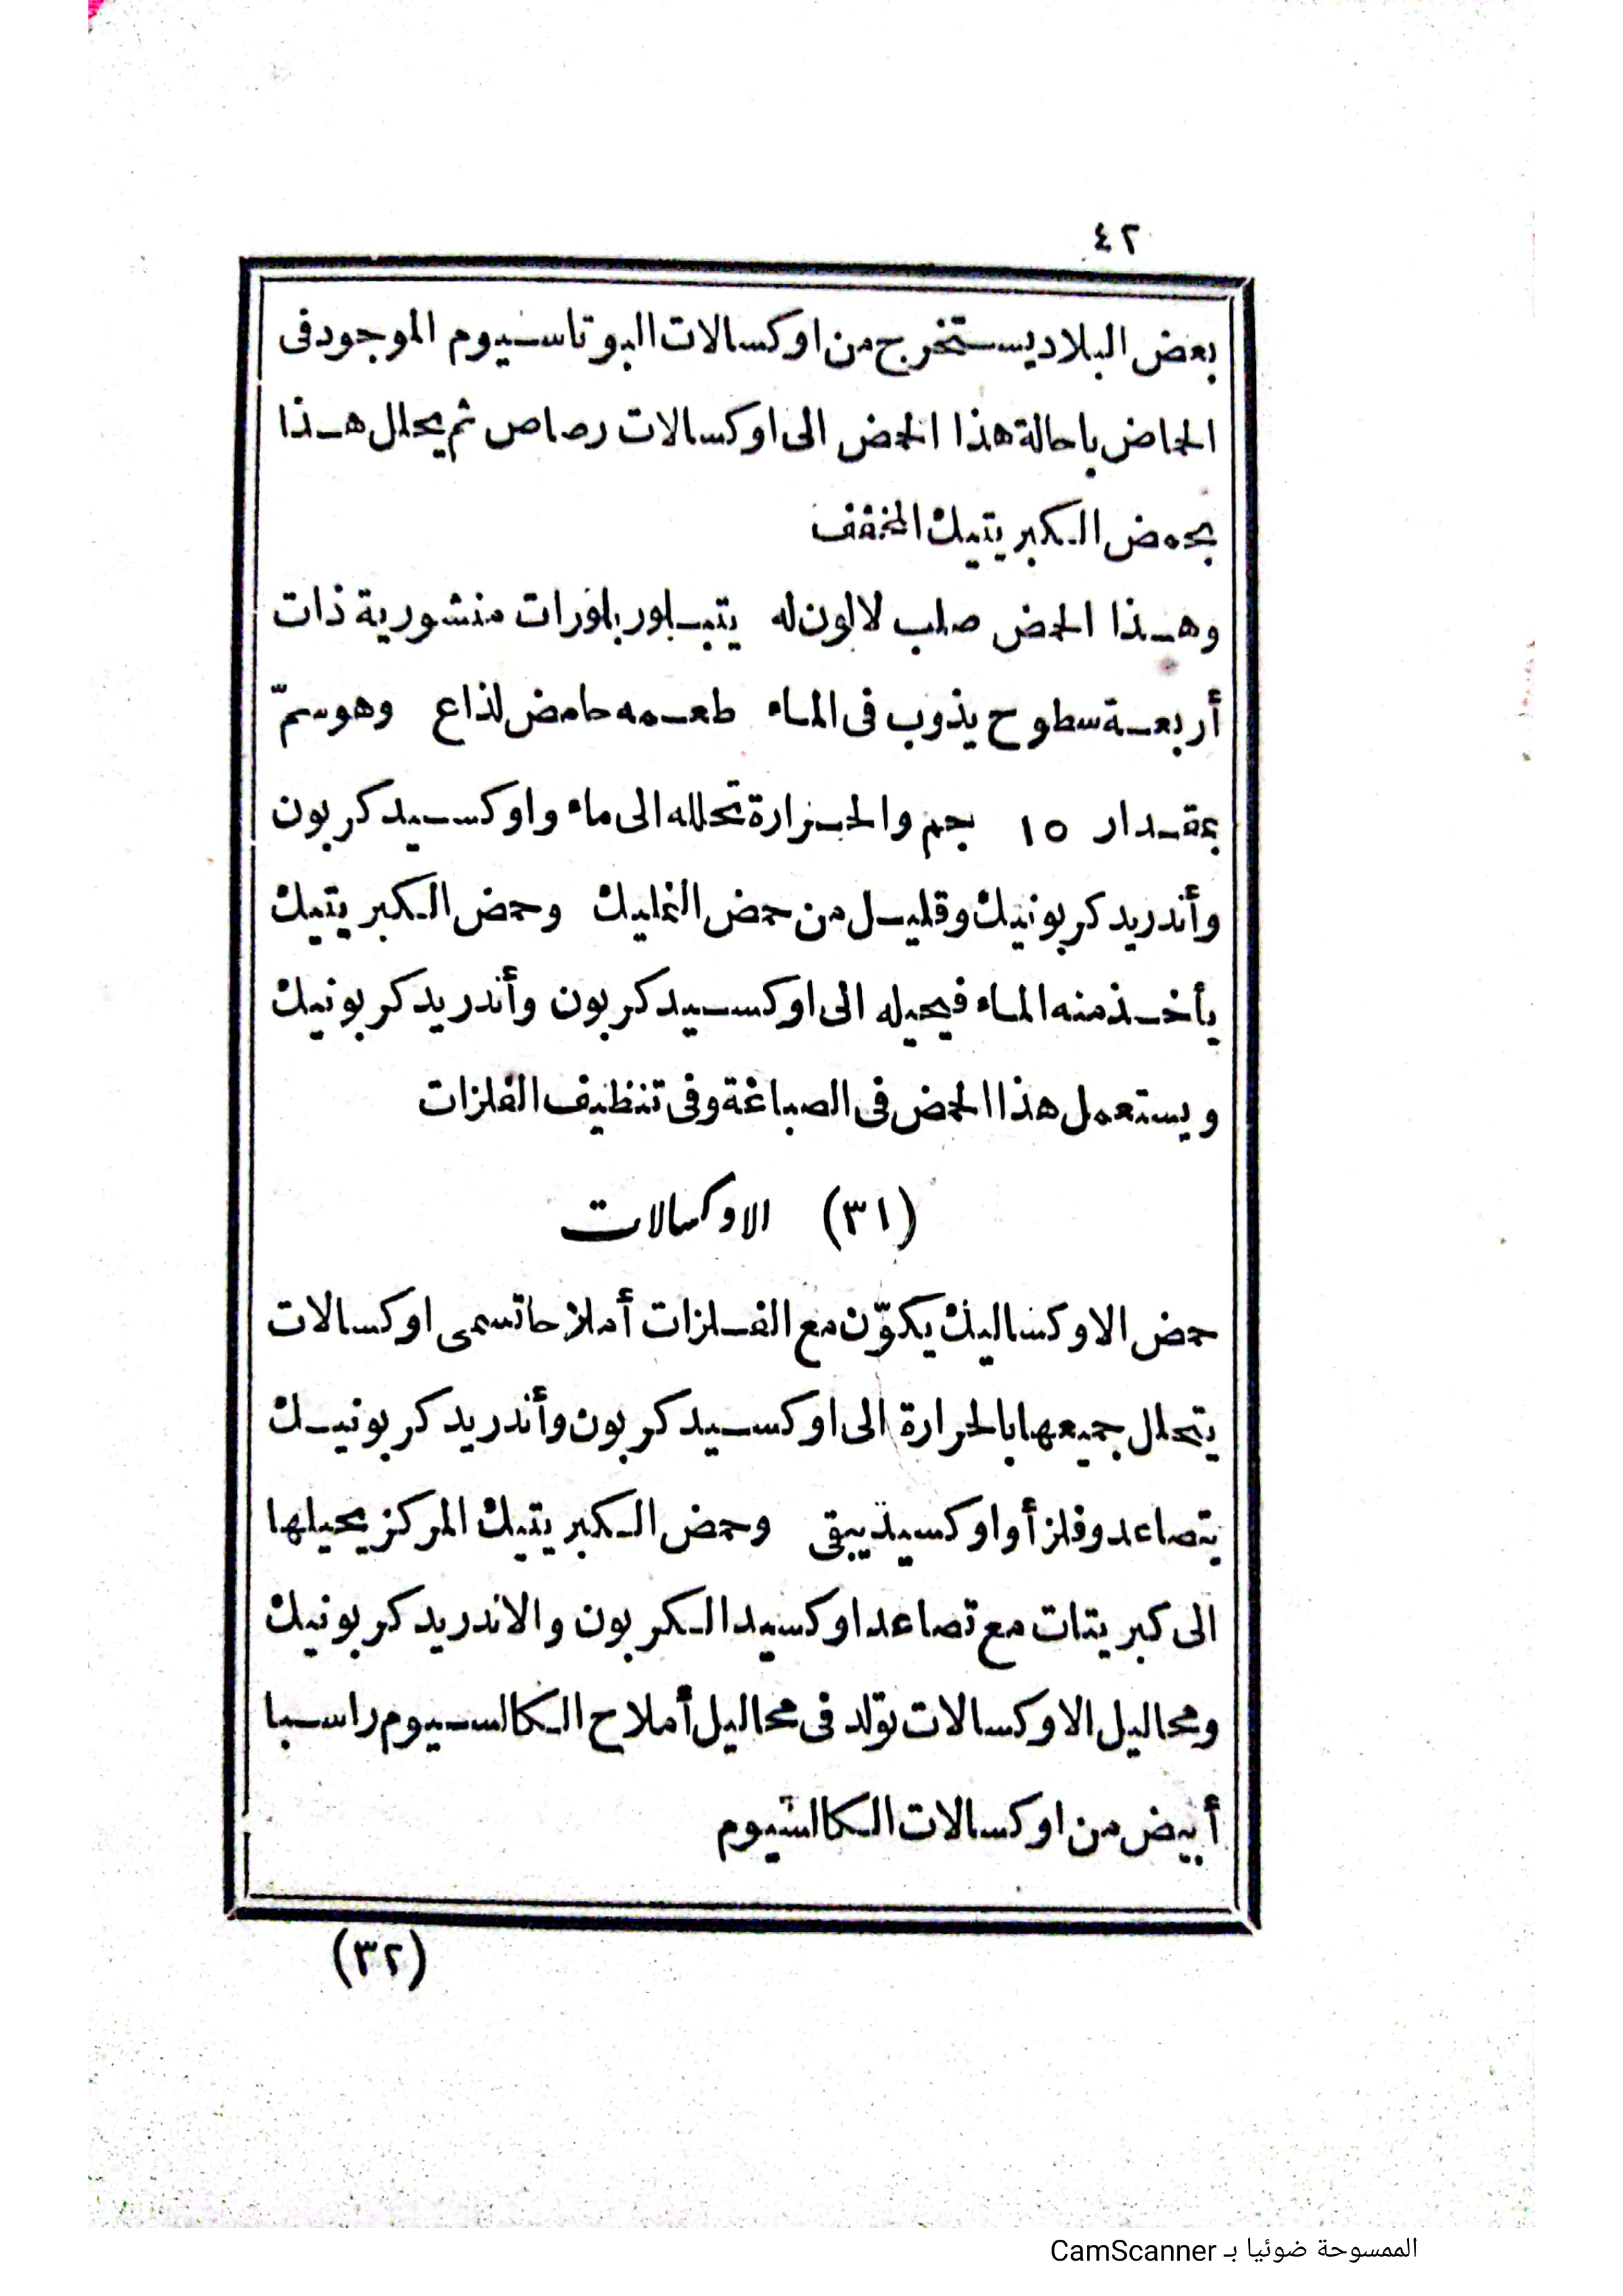 ٤٢
بعض البلاد يستخرج من اوكسالات البوتاسيوم الموجود فى
الحماض باحالة هذا الحمض الى اوكسالات رصاص ثم يحلل هذا
بحمض الكبريتيك المخفف
وهذا الحمض صلب لا لون له يتبلور بلورات منشورية ذات
أربعة سطوح يذوب فى الماء طعمه حامض لذاع وهو سمّ
بمقدار ١٥ جم والحرارة تحلله الى ماء واوكسيد كربون
وأندريد كربونيك وقليل من حمض النمليك وحمض الكبريتيك
يأخذ منه الماء فيحيله الى اوكسيد كربون وأندريد كربونيك
ويستعمل هذا الحمض فى الصباغة وفى تنظيف الفلزات
(٣١) الاوكسالات
حمض الاوكساليك يكوّن مع الفلزات أملاحا تسمى اوكسالات
يتحلل جميعها بالحرارة الى اوكسيد كربون وأندريد كربونيك
يتصاعد وفلز أو اوكسيد يبقى وحمض الكبريتيك المركز يحيلها
الى كبريتات مع تصاعد اوكسيد الكربون والاندريد كربونيك
ومحاليل الاوكسالات تولد فى محاليل أملاح الكالسيوم راسبا
أبيض من اوكسالات الكالسيوم
(٣٢)
الممسوحة ضوئيا بـ CamScanner